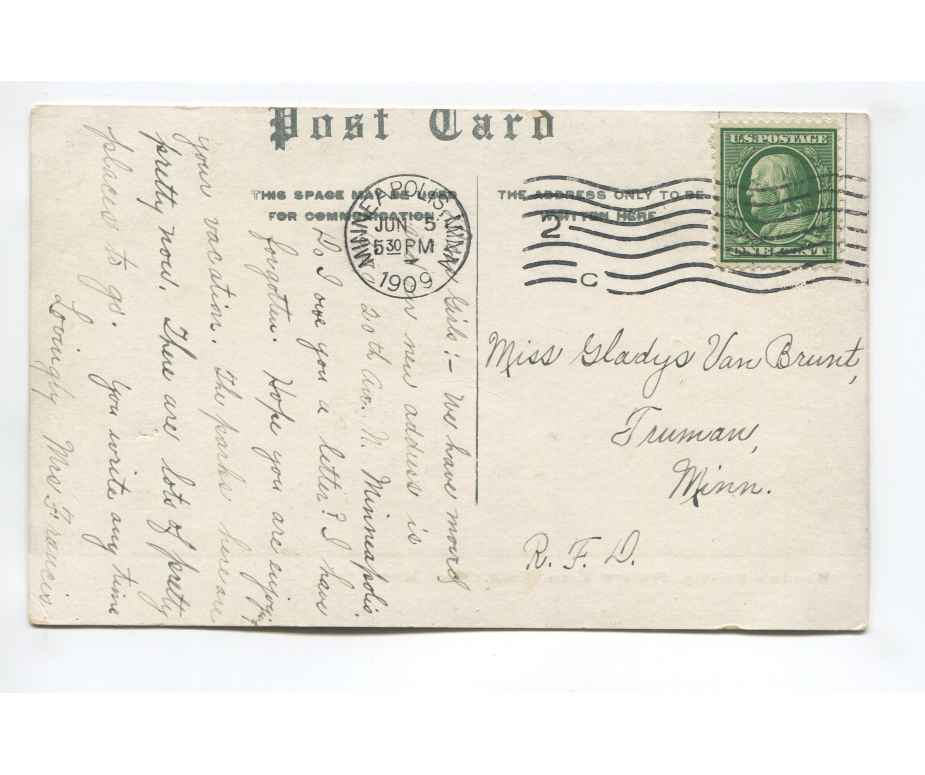 Post Card
THIS SPACE MAY BE USED
FOR COMMUNICATION
THE ADDRESS ONLY TO BE
WRITTEN HERE
U.S. POSTAGE
ONE CENT
MINNEAPOLIS, MINN.
JUN 5
5 30 PM
1909
2
C
Girls:- We have moved
new address is
20th Av. N. Minneapolis.
Do I owe you a letter? I have
forgotten. Hope you are enjoying
your vacation. The parks here are
pretty now. There are lots of pretty
places to go. You write any time
Lovingly Mrs Francis
Miss Gladys Van Brunt,
Truman,
Minn.
R. F. D.